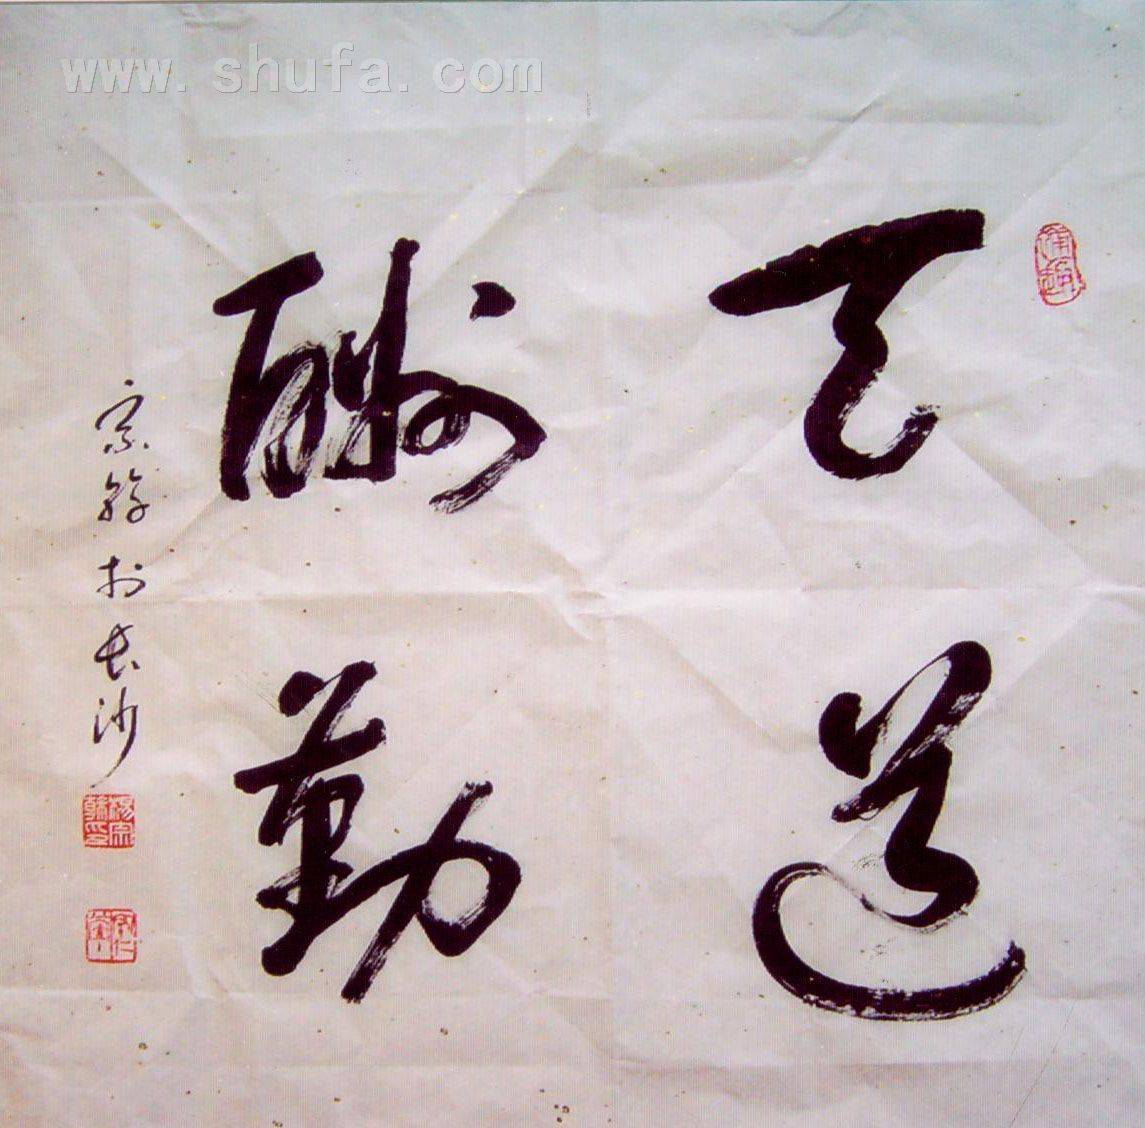 www.shufa.com
天道
酬勤
宗翰于长沙